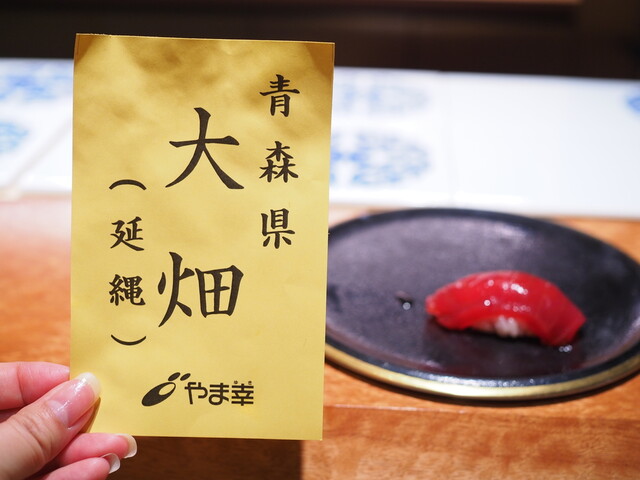 青森県
大畑
（延縄）
やま幸